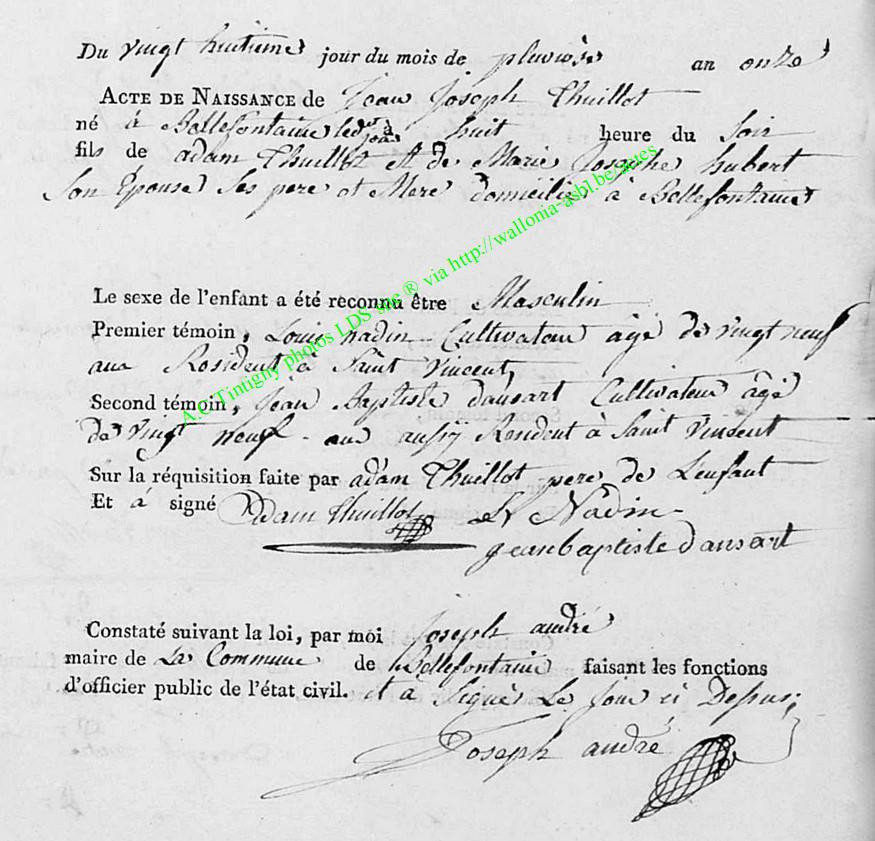 Du vingt huitieme jour du mois de pluviose an onze
ACTE DE NAISSANCE de Jean Joseph Thuillot
né à Bellefontaine ledit jour à huit heure du Soir
fils de adam Thuillot et de Marie Josephe hubert
Son Epouse Ses pere et Mere domicilié à Bellefontaine
Le sexe de l'enfant a été reconnu être Masculin
Premier témoin, Louis nadin Cultivateur âgé de vingt neuf
ans Resident à Saint Vincent,
Second témoin, Jean Baptiste dausart Cultivateur âgé
de vingt neuf ans aussy Resident à Saint Vincent
Sur la réquisition faite par adam Thuillot pere de Lenfant
Et à signé Adam thuillot L Nadin
jean baptiste dansart
Constaté suivant la loi, par moi Joseph andré
maire de La Commune de Bellefontaine faisant les fonctions
d'officier public de l'état civil. et a Signé Le Jour ci Desus;
Joseph andré
A.C Tintigny photos LDS snc ® via http://wallonia-asbl.be/actes